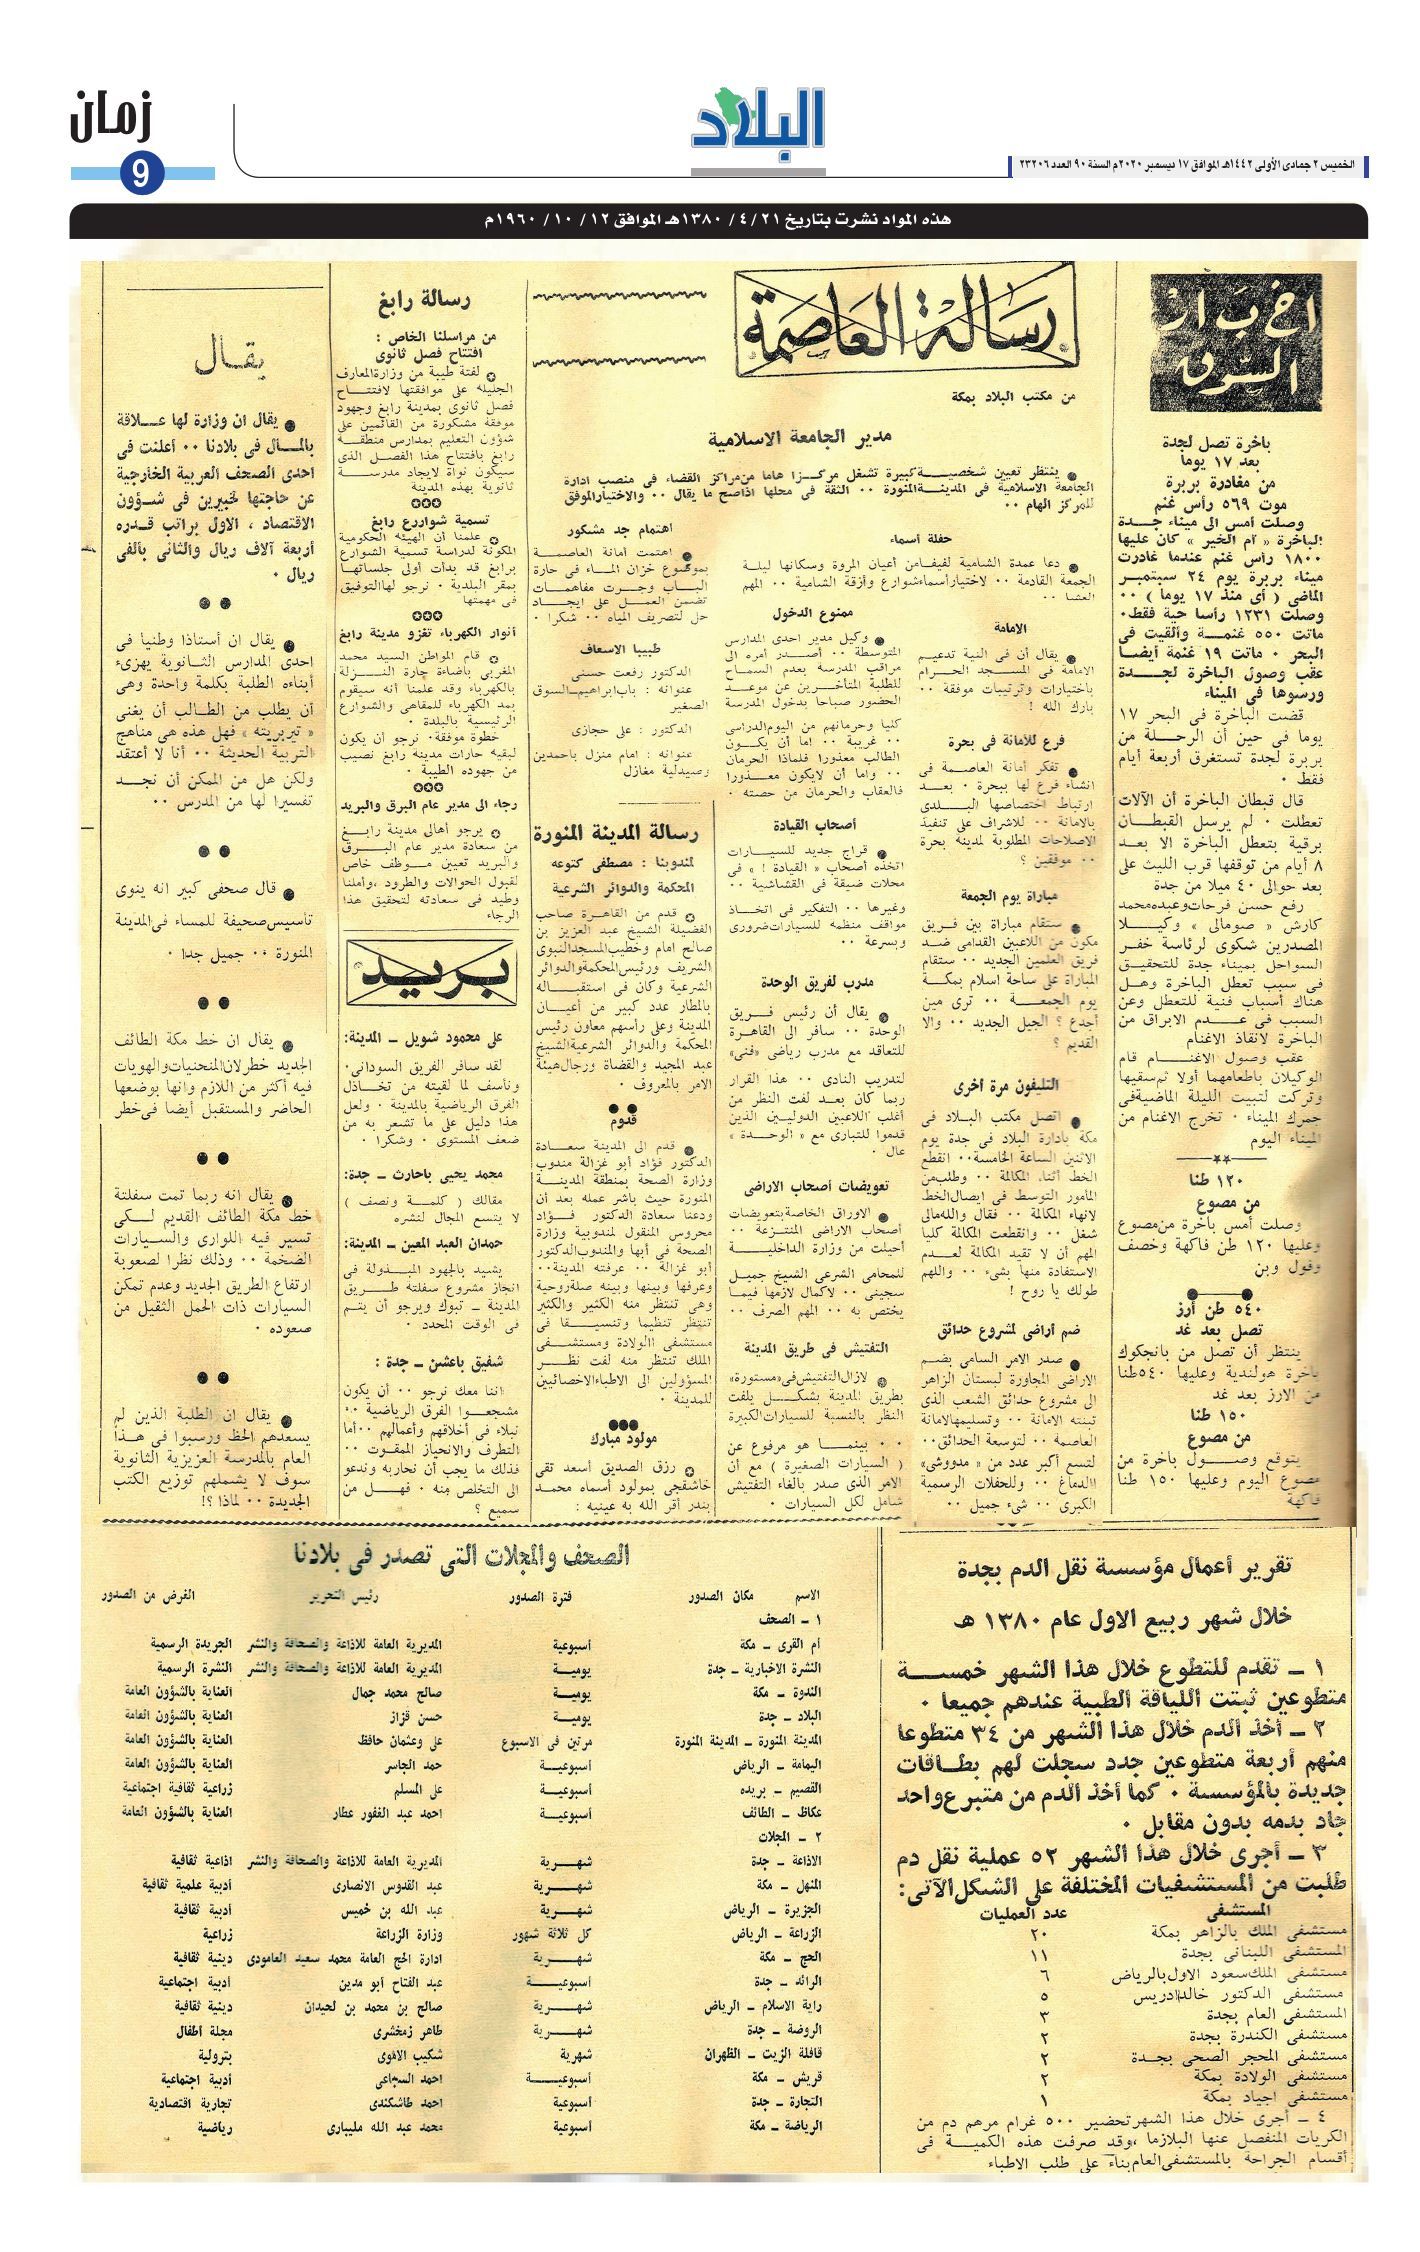 زمان
9
البلاد
الخميس ٢ جمادى الأولى ١٤٤٢هـ الموافق ١٧ ديسمبر ٢٠٢٠م السنة ٩٠ العدد ٢٣٢٠٦
هذه المواد نشرت بتاريخ ٢١ /٤ /١٣٨٠هـ الموافق ١٢ /١٠ /١٩٦٠م
اخبار
السوق
باخرة تصل لجدة
بعد ١٧ يوما
من مغادرة بربرة
موت ٥٦٩ رأس غنم
وصلت أمس الى ميناء جدة
الباخرة « أم الخير » كان عليها
١٨٠٠ رأس غنم عندما غادرت
ميناء بربرة يوم ٢٤ سبتمبر
الماضى ( أى منذ ١٧ يوما ) ٠٠
وصلت ١٢٣١ رأسا حية فقط٠
ماتت ٥٥٠ غنمة وألقيت فى
البحر ٠ ماتت ١٩ غنمة أيضا
عقب وصول الباخرة لجدة
ورسوها فى الميناء
قضت الباخرة فى البحر ١٧
يوما فى حين أن الرحلة من
بربرة لجدة تستغرق أربعة أيام
فقط ٠
قال قبطان الباخرة أن الآلات
تعطلت ٠ لم يرسل القبطان
برقية بتعطل الباخرة الا بعد
٨ أيام من توقفها قرب الليث على
بعد حوالى ٤٠ ميلا من جدة
رفع حسن فرحات وعبده محمد
كارش « صومالى » وكيلا
المصدرين شكوى لرئاسة خفر
السواحل بميناء جدة للتحقيق
فى سبب تعطل الباخرة وهل
هناك أسباب فنية للتعطل وعن
السبب فى عدم الابراق من
الباخرة لانقاذ الاغنام
عقب وصول الاغنام قام
الوكيلان باطعامهما أولا ثم سقيها
وتركت لتبيت الليلة الماضية فى
جمرك الميناء ٠ تخرج الاغنام من
الميناء اليوم
١٢٠ طنا
من مصوع
وصلت أمس باخرة من مصوع
وعليها ١٢٠ طن فاكهة وخصف
وفول وبن
٥٤٠ طن أرز
تصل بعد غد
ينتظر أن تصل من بانجكوك
باخرة هولندية وعليها ٥٤٠طنا
من الارز بعد غد
١٥٠ طنا
من مصوع
يتوقع وصول باخرة من
مصوع اليوم وعليها ١٥٠ طنا
فاكهة
رسالة العاصمة
من مكتب البلاد بمكة
مدير الجامعة الاسلامية
ينتظر تعيين شخصية كبيرة تشغل مركزا هاما من مراكز القضاء فى منصب ادارة
الجامعة الاسلامية فى المدينة المنورة ٠٠ الثقة فى محلها اذاصح ما يقال ٠٠ والاختيار الموفق
للمركز الهام ٠٠
حفلة أسماء
دعا عمدة الشامية لفيفا من أعيان المروة وسكانها ليلة
الجمعة القادمة ٠٠ لاختيار أسماء شوارع وأزقة الشامية ٠٠ المهم
العشا ٠٠
الامامة
يقال أن فى النية تدعيم
الامامة فى المسجد الحرام
باختيارات وترتيبات موفقة ٠٠
بارك الله !
فرع للأمانة فى بحرة
تفكر أمانة العاصمة فى
انشاء فرع لها ببحرة ٠ بعد
ارتباط اختصاصها البلدى
بالامانة ٠٠ للاشراف على تنفيذ
الاصلاحات المطلوبة لمدينة بحرة
٠٠ موفقين ؟
مباراة يوم الجمعة
ستقام مباراة بين فريق
مكون من اللاعبين القدامى ضد
فريق العلمين الجديد ٠٠ ستقام
المباراة على ساحة اسلام بمكة
يوم الجمعة ٠٠ ترى مين
أجدع ؟ الجيل الجديد ٠٠ والا
القديم ؟
التليفون مرة أخرى
اتصل مكتب البلاد فى
مكة بادارة البلاد فى جدة يوم
الاثنين الساعة الخامسة٠٠ انقطع
الخط أثناء المكالمة ٠٠ وطلب من
المأمور التوسط فى ايصال الخط
لانهاء المكالمة ٠٠ فقال والله مالى
شغل ٠٠ وانقطعت المكالمة كليا
المهم أن لا تقيد المكالمة لعدم
الاستفادة منها بشىء ٠٠ واللهم
طولك يا روح !
ضم أراضى لمشروع حدائق
صدر الامر السامى بضم
الاراضى المجاورة لبستان الزاهر
الى مشروع حدائق الشعب الذى
تبنته الامانة ٠٠ وتسليمها لامانة
العاصمة ٠٠ لتوسعة الحدائق٠٠
لتسع أكبر عدد من « مدووشى»
الدماغ ٠٠ وللحفلات الرسمية
الكبرى ٠٠ شىء جميل ٠٠
ممنوع الدخول
وكيل مدير احدى المدارس
المتوسطة ٠٠ أصدر أمره الى
مراقب المدرسة بعدم السماح
للطلبة المتأخرين عن موعد
الحضور صباحا بدخول المدرسة
كليا وحرمانهم من اليوم الدراسى
٠٠ غريبة ٠٠ اما أن يكون
الطالب معذورا فلماذا الحرمان
٠٠ واما أن لايكون معذورا
فالعقاب والحرمان من حصته ٠
أصحاب القيادة
قراج جديد للسيارات
اتخذه أصحاب « القيادة ! » فى
محلات ضيقة فى القشاشية ٠٠
وغيرها ٠٠ التفكير فى اتخاذ
مواقف منظمة للسيارات ضرورى
وبسرعة ٠٠
مدرب لفريق الوحدة
يقال أن رئيس فريق
الوحدة ٠٠ سافر الى القاهرة
للتعاقد مع مدرب رياضى «فنى»
لتدريب النادى ٠٠ هذا القرار
ربما كان بعد لفت النظر من
أغلب اللاعبين الدوليين الذين
قدموا للتبارى مع « الوحدة »
عال ٠
تعويضات أصحاب الاراضى
الاوراق الخاصة بتعويضات
أصحاب الاراضى المنتزعة ٠٠
أحيلت من وزارة الداخلية
للمحامى الشرعى الشيخ جميل
سجينى ٠٠ لاكمال لازمها فيما
يختص به ٠٠ المهم الصرف ٠٠
التفتيش فى طريق المدينة
لازال التفتيش فى «مستورة»
بطريق المدينة بشكل يلفت
النظر بالنسبة للسيارات الكبيرة
٠٠ بينما هو مرفوع عن
( السيارات الصغيرة ) مع أن
الامر الذى صدر بالغاء التفتيش
شامل لكل السيارات ٠
اهتمام جد مشكور
اهتمت أمانة العاصمة
بموضوع خزان الماء فى حارة
الباب وجرت مفاهمات
تضمن العمل على ايجاد
حل لتصريف المياه ٠٠ شكرا ٠
طبيبا الاسعاف
الدكتور رفعت حسنى
عنوانه : باب ابراهيم السوق
الصغير
الدكتور : على حجازى
عنوانه : امام منزل باحمدين
وصيدلية مغازل
رسالة المدينة المنورة
لمندوبنا : مصطفى كتوعه
المحكمة والدوائر الشرعية
قدم من القاهرة صاحب
الفضيلة الشيخ عبد العزيز بن
صالح امام وخطيب المسجد النبوى
الشريف ورئيس المحكمة والدوائر
الشرعية وكان فى استقباله
بالمطار عدد كبير من أعيان
المدينة وعلى رأسهم معاون رئيس
المحكمة والدوائر الشرعية الشيخ
عبد المجيد والقضاة ورجال هيئة
الامر بالمعروف ٠
قدوم
قدم الى المدينة سعادة
الدكتور فؤاد أبو غزالة مندوب
وزارة الصحة بمنطقة المدينة
المنورة حيث باشر عمله بعد أن
ودعنا سعادة الدكتور فؤاد
محروس المنقول لمندوبية وزارة
الصحة فى أبها والمندوب الدكتور
أبو غزالة ٠٠ عرفته المدينة٠٠
وعرفها وبينها وبينه صلة روحية
وهى تنتظر منه الكثير والكثير
تنتظر تنظيما وتنسيقا فى
مستشفى الولادة ومستشفى
الملك تنتظر منه لفت نظر
المسؤولين الى الاطباء الاخصائيين
للمدينة ٠
مولود مبارك
رزق الصديق أسعد تقى
خاشقجى بمولود أسماه محمد
بندر أقر الله به عينيه :
رسالة رابغ
من مراسلنا الخاص :
افتتاح فصل ثانوى
لفتة طيبة من وزارة المعارف
الجليلة على موافقتها لافتتاح
فصل ثانوى بمدينة رابغ وجهود
موفقة مشكورة من القائمين على
شؤون التعليم بمدارس منطقة
رابغ بافتتاح هذا الفصل الذى
سيكون نواة لايجاد مدرسة
ثانوية بهذه المدينة
تسمية شواررع رابغ
علمنا أن الهيئة الحكومية
المكونة لدراسة تسمية الشوارع
برابغ قد بدأت أولى جلساتها
بمقر البلدية ٠ نرجو لها التوفيق
فى مهمتها
أنوار الكهرباء تغزو مدينة رابغ
قام المواطن السيد محمد
المغربى باضاءة جارة النزلة
بالكهرباء وقد علمنا أنه سيقوم
بمد الكهرباء للمقاهى والشوارع
الرئيسية بالبلدة ٠
خطوة موفقة٠ نرجو أن يكون
لبقية حارات مدينة رابغ نصيب
من جهوده الطيبة ٠
رجاء الى مدير عام البرق والبريد
يرجو أهالى مدينة رابغ
من سعادة مدير عام البرق
والبريد تعيين موظف خاص
لقبول الحوالات والطرود ،وأملنا
وطيد فى سعادته لتحقيق هذا
الرجاء
بريد
على محمود شويل ـ المدينة:
لقد سافر الفريق السودانى٠
ونأسف لما لقيته من تخاذل
الفرق الرياضية بالمدينة ٠ ولعل
هذا دليل على ما تشعر به من
ضعف المستوى ٠ وشكرا ٠
محمد يحيى باحارث ـ جدة:
مقالك ( كلمة ونصف )
لا يتسع المجال لنشره
حمدان العبد المعين ـ المدينة:
يشيد بالجهود المبذولة فى
انجاز مشروع سفلتة طريق
المدينة ـ تبوك ويرجو أن يتم
فى الوقت المحدد ٠
شفيق باعشن ـ جدة :
اننا معك نرجو ٠٠ أن يكون
مشجعوا الفرق الرياضية ٠٠
نبلاء فى أخلاقهم وأعمالهم ٠٠أما
التطرف والانحياز الممقوت ٠٠
فذلك ما يجب أن نحاربه وندعو
الى التخلص منه ٠ فهل من
سميع ؟
يقال
يقال ان وزارة لها علاقة
بالمال فى بلادنا ٠٠ أعلنت فى
احدى الصحف العربية الخارجية
عن حاجتها لخبيرين فى شؤون
الاقتصاد ، الاول براتب قدره
أربعة آلاف ريال والثانى بألفى
ريال ٠
يقال ان أستاذا وطنيا فى
احدى المدارس الثانوية يهزىء
أبناءه الطلبة بكلمة واحدة وهى
أن يطلب من الطالب أن يغنى
« تيربريته » فهل هذه هى مناهج
التربية الحديثة ٠٠ أنا لا أعتقد
ولكن هل من الممكن أن نجد
تفسيرا لها من المدرس ٠٠
قال صحفى كبير انه ينوى
تأسيس صحيفة للمساء فى المدينة
المنورة ٠٠ جميل جدا ٠
يقال ان خط مكة الطائف
الجديد خطر لان المنحنيات والهويات
فيه أكثر من اللازم وانها بوضعها
الحاضر والمستقبل أيضا فى خطر
يقال انه ربما تمت سفلتة
خط مكة الطائف القديم لكى
تسير فيه اللوارى والسيارات
الضخمة ٠٠ وذلك نظرا لصعوبة
ارتفاع الطريق الجديد وعدم تمكن
السيارات ذات الحمل الثقيل من
صعوده ٠
يقال ان الطلبة الذين لم
يسعدهم الحظ ورسبوا فى هذا
العام بالمدرسة العزيزية الثانوية
سوف لا يشملهم توزيع الكتب
الجديدة ٠٠ لماذا ؟!
تقرير أعمال مؤسسة نقل الدم بجدة
خلال شهر ربيع الاول عام ١٣٨٠ هـ
١ ـ تقدم للتطوع خلال هذا الشهر خمسة
متطوعين ثبتت اللياقة الطبية عندهم جميعا ٠
٢ ـ أخذ الدم خلال هذا الشهر من ٣٤ متطوعا
منهم أربعة متطوعين جدد سجلت لهم بطاقات
جديدة بالمؤسسة ٠ كما أخذ الدم من متبرع واحد
جاد بدمه بدون مقابل ٠
٣ ـ أجرى خلال هذا الشهر ٥٢ عملية نقل دم
طلبت من المستشفيات المختلفة على الشكل الآتى:
المستشفى عدد العمليات
مستشفى الملك بالزاهر بمكة ٢٠
المستشفى اللبنانى بجدة ١١
مستشفى الملك سعود الاول بالرياض ٦
مستشفى الدكتور خالد ادريس ٥
المستشفى العام بجدة ٣
مستشفى الكندرة بجدة ٢
مستشفى المحجر الصحى بجدة ٢
مستشفى الولادة بمكة ٢
مستشفى اجياد بمكة ١
٤ ـ أجرى خلال هذا الشهر تحضير ٥٠٠ غرام مرهم دم من
الكريات المنفصل عنها البلازما ،وقد صرفت هذه الكمية فى
أقسام الجراحة بالمستشفى العام بناء على طلب الاطباء
الصحف والمجلات التى تصدر فى بلادنا
الاسم مكان الصدور فترة الصدور رئيس التحرير الغرض من الصدور
١ ـ الصحف
أم القرى ـ مكة أسبوعية المديرية العامة للاذاعة والصحافة والنشر الجريدة الرسمية
النشرة الاخبارية ـ جدة يومية المديرية العامة للاذاعة والصحافة والنشر النشرة الرسمية
الندوة ـ مكة يومية صالح محمد جمال العناية بالشؤون العامة
البلاد ـ جدة يومية حسن قزاز العناية بالشؤون العامة
المدينة المنورة ـ المدينة المنورة مرتين فى الاسبوع على وعثمان حافظ العناية بالشؤون العامة
اليمامة ـ الرياض أسبوعية حمد الجاسر العناية بالشؤون العامة
القصيم ـ بريده أسبوعية على المسلم زراعية ثقافية اجتماعية
عكاظ ـ الطائف أسبوعية احمد عبد الغفور عطار العناية بالشؤون العامة
٢ ـ المجلات
الاذاعة ـ جدة شهرية المديرية العامة للاذاعة والصحافة والنشر اذاعية ثقافية
المنهل ـ مكة شهرية عبد القدوس الانصارى أدبية علمية ثقافية
الجزيرة ـ الرياض شهرية عبد الله بن خميس أدبية ثقافية
الزراعة ـ الرياض كل ثلاثة شهور وزارة الزراعة زراعية
الحج ـ مكة شهرية ادارة الحج العامة محمد سعيد العامودى دينية ثقافية
الرائد ـ جدة أسبوعية عبد الفتاح أبو مدين أدبية اجتماعية
راية الاسلام ـ الرياض شهرية صالح بن محمد بن لحيدان دينية ثقافية
الروضة ـ جدة شهرية طاهر زمخشرى مجلة أطفال
قافلة الزيت ـ الظهران شهرية شكيب الاموى بترولية
قريش ـ مكة أسبوعية احمد السباعى أدبية اجتماعية
التجارة ـ جدة أسبوعية احمد طاشكندى تجارية اقتصادية
الرياضة ـ مكة أسبوعية محمد عبد الله مليبارى رياضية